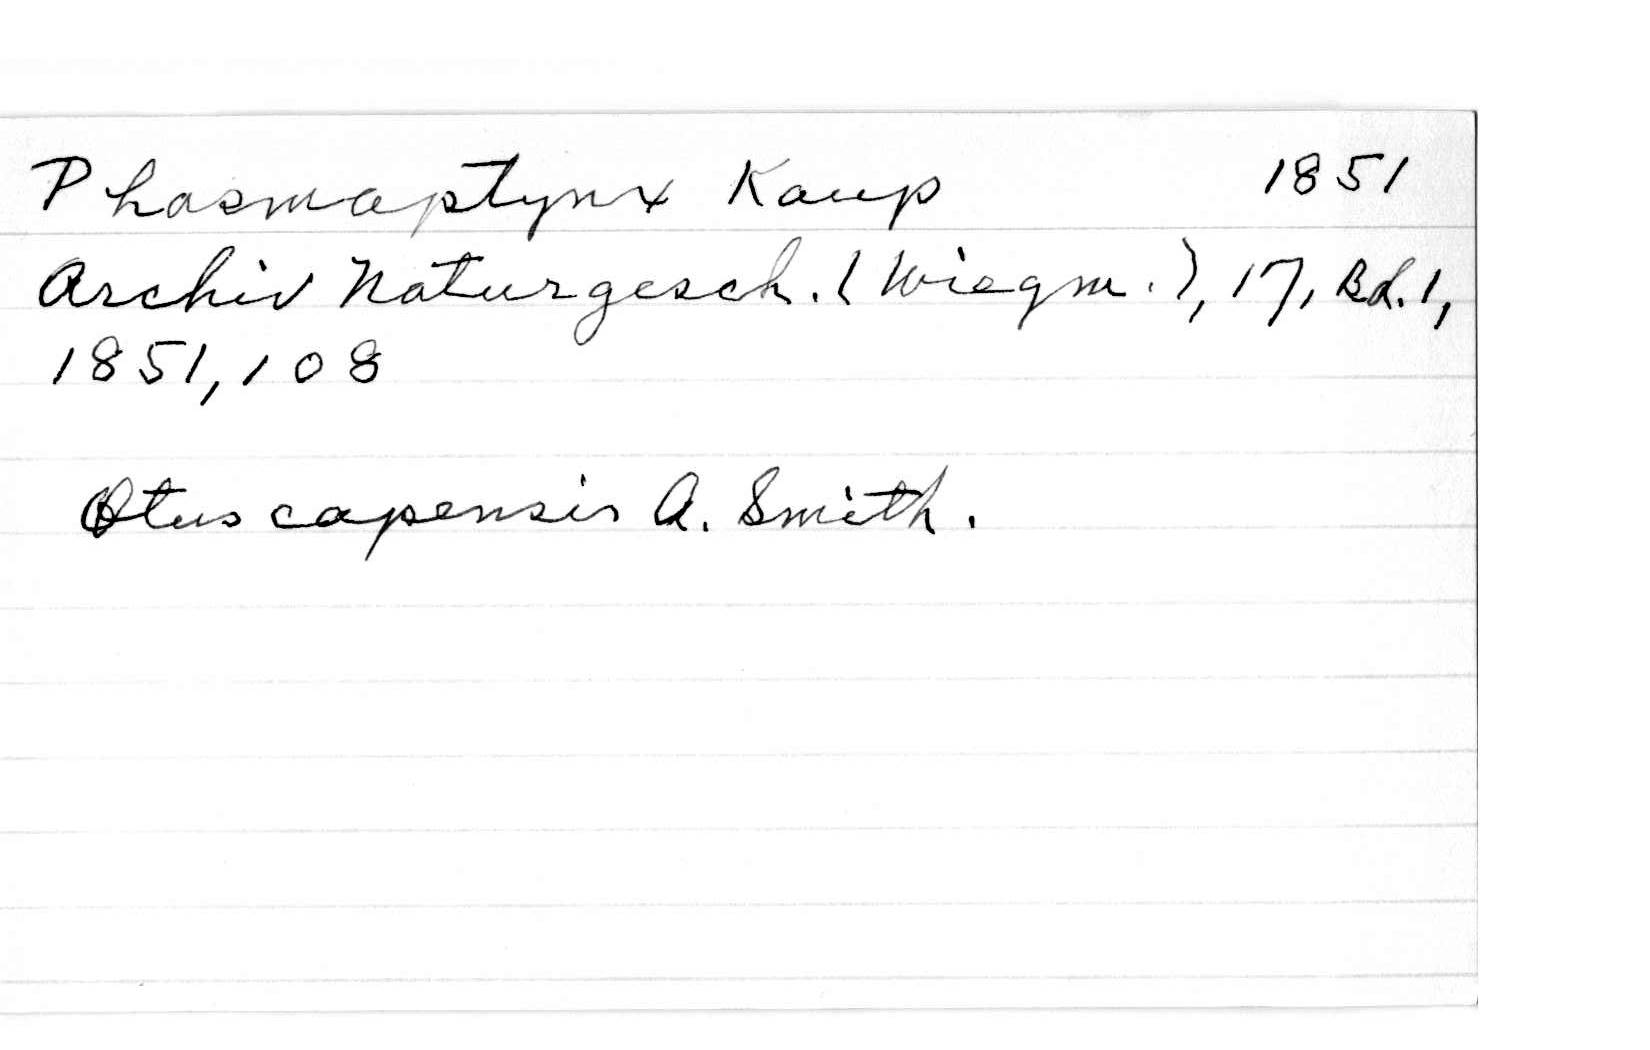 Phasmaptynx Kaup 1851
Archiv Naturgesch. (Wiegm.), 17, Bd. 1,
1851, 108
Otus capensis A. Smith.